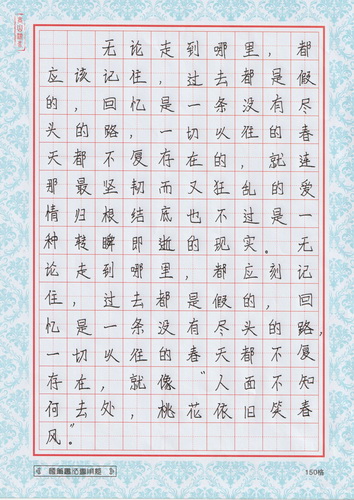 无论走到哪里，都
应该记住，过去都是假
的，回忆是一条没有尽
头的路，一切以往的春
天都不复存在的，就连
那最坚韧而又狂乱的爱
情归根结底也不过是一
种转瞬即逝的现实。无
论走到哪里，都应刻记
住，过去都是假的，回
忆是一条没有尽头的路，
一切以往的春天都不复
存在，就像“人面不知
何去处，桃花依旧笑春
风”。
150格